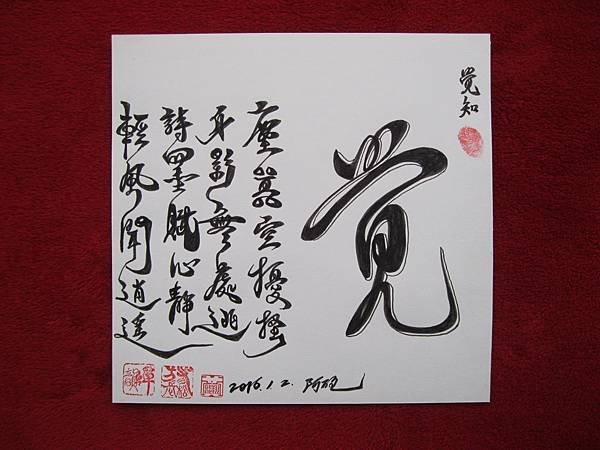 觉知
觉
塵囂空擾搔
身影無處迯
詩墨賦心靜
輕風聞逍遙
2016.1.2. 阿